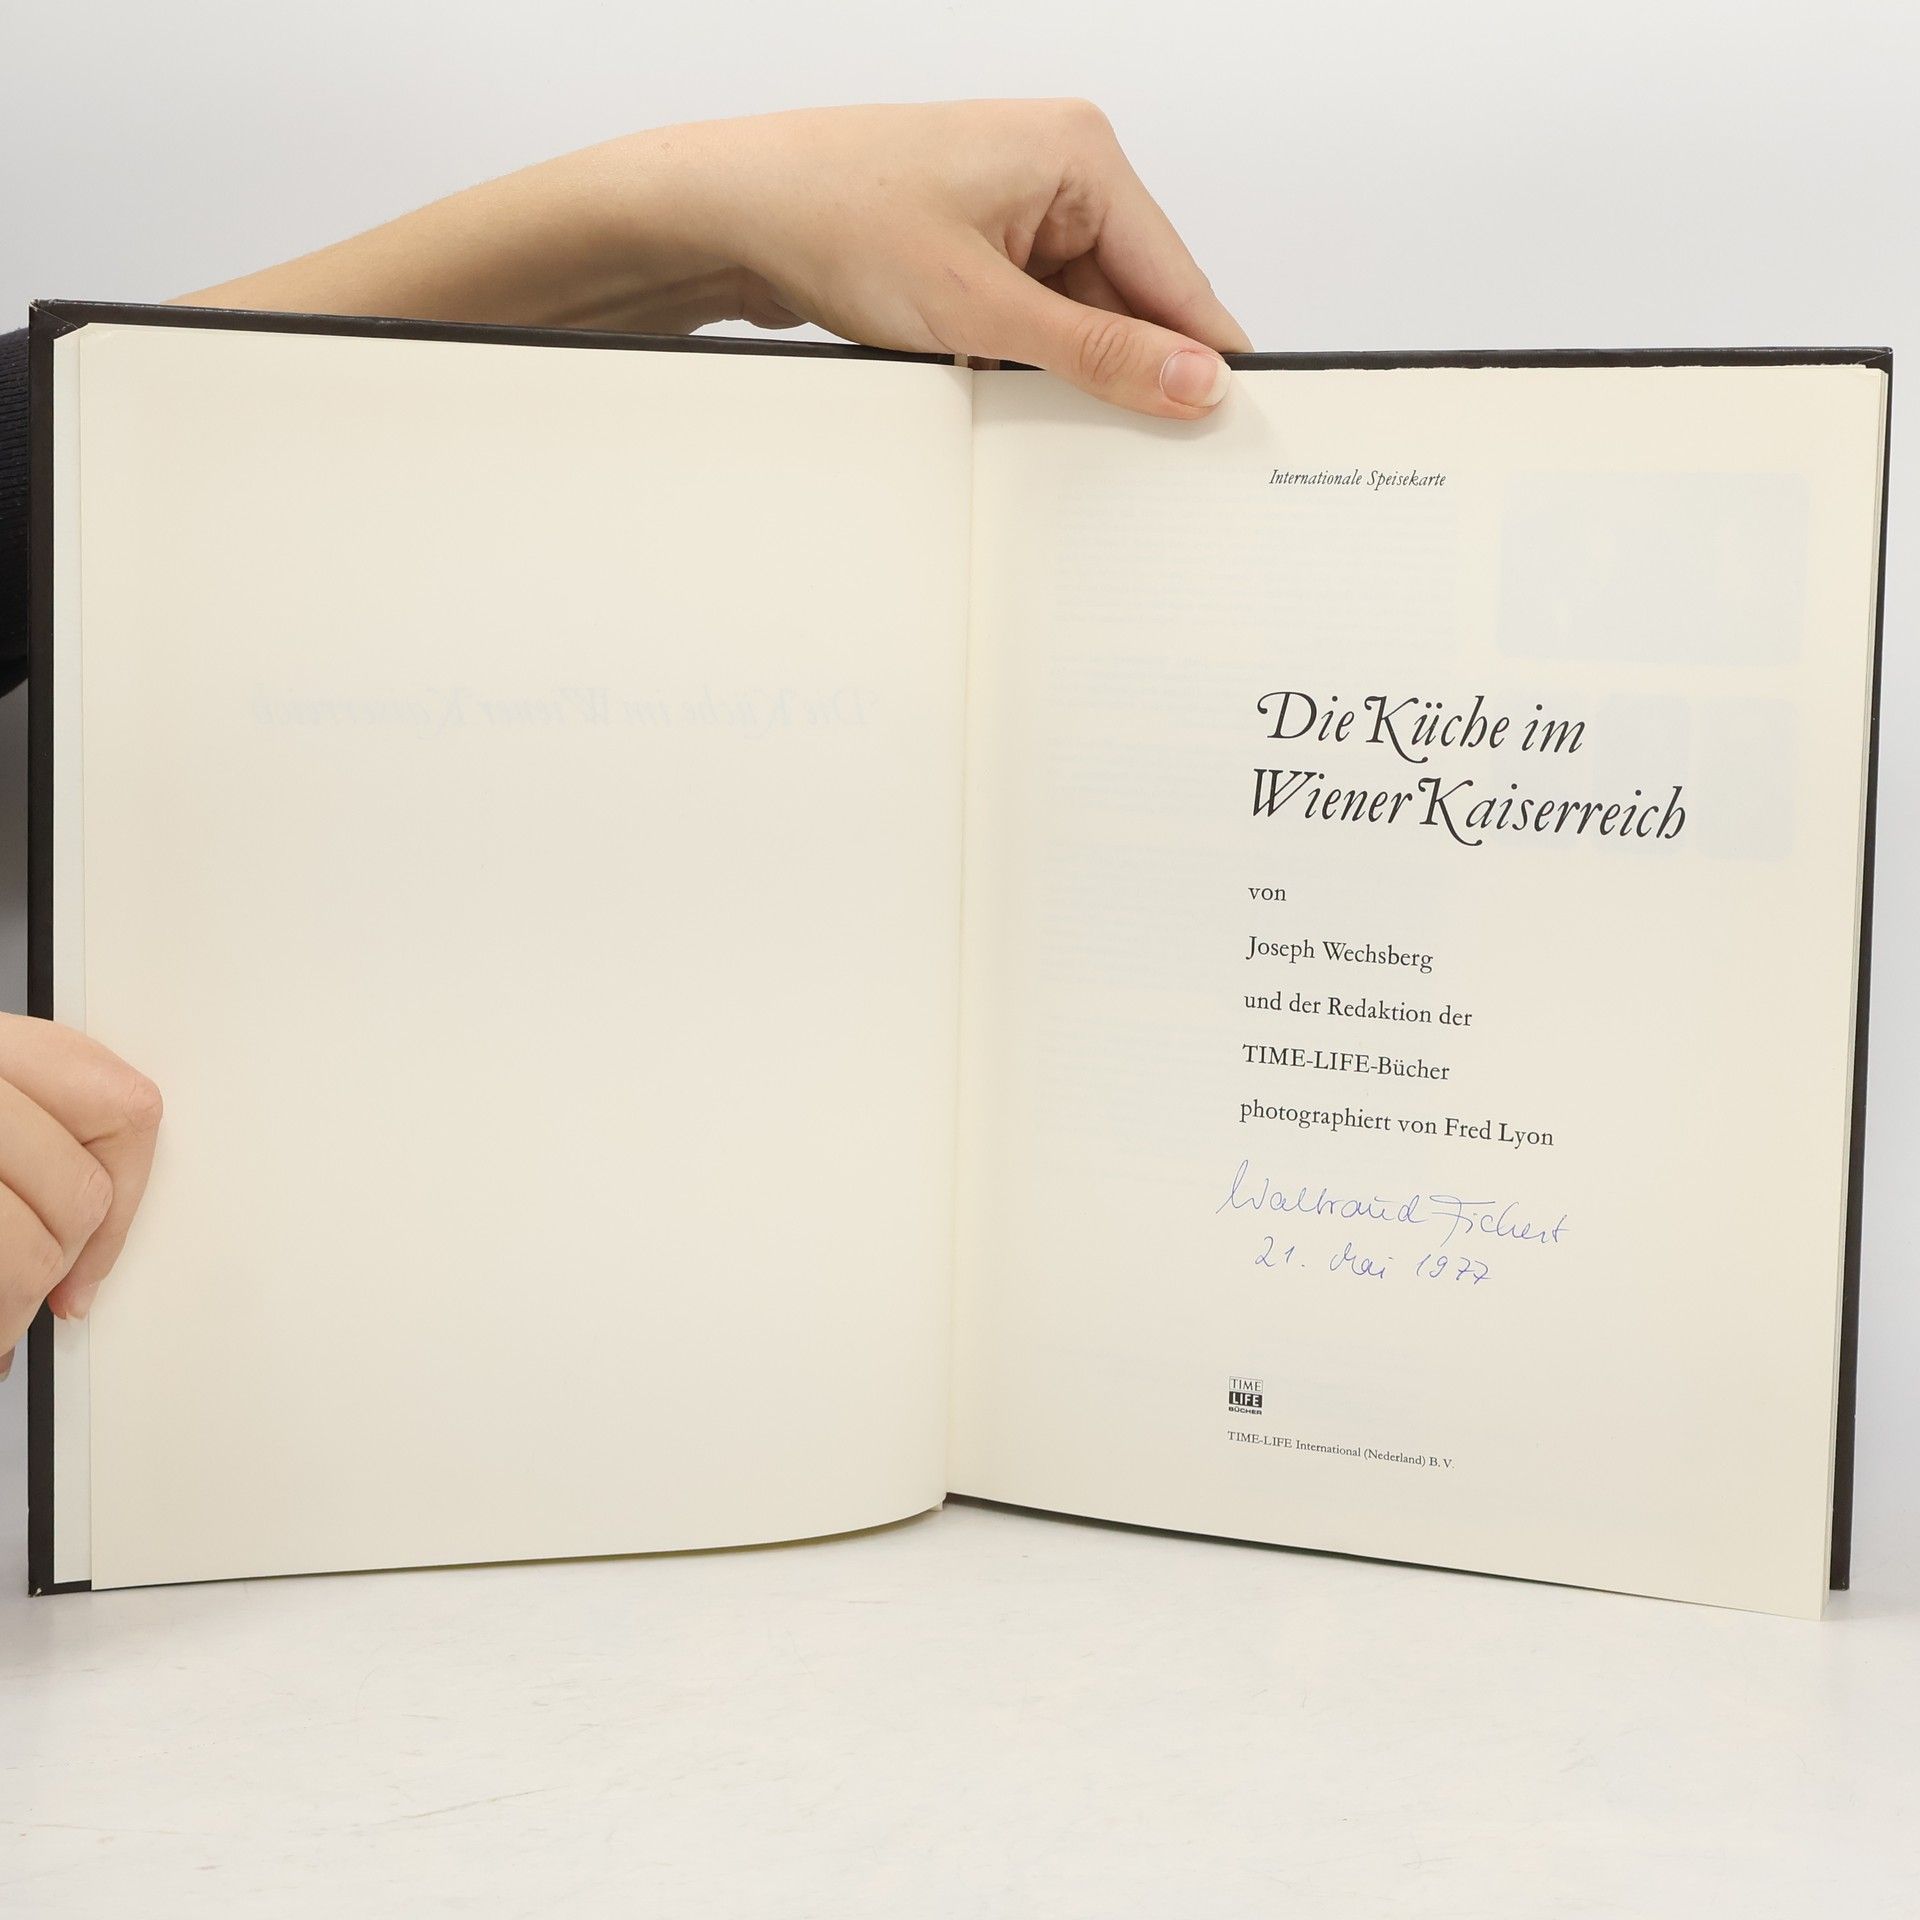 Internationale Speisekarte
Die Küche im
Wiener Kaiserreich
von
Joseph Wechsberg
und der Redaktion der
TIME-LIFE-Bücher
photographiert von Fred Lyon
Waltraud Fichert
21. Mai 1977
TIME
LIFE
BÜCHER
TIME-LIFE International (Nederland) B. V.